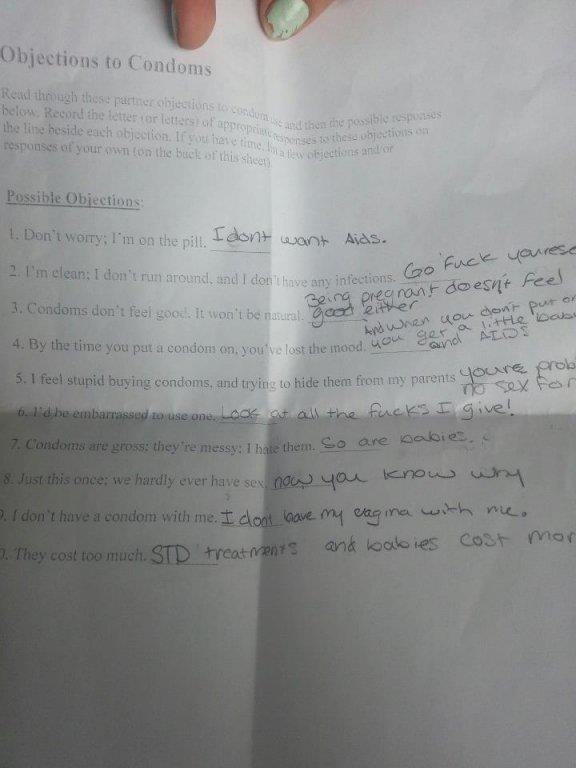 Objections to Condoms
Read through these partner objections to condom use and then the possible responses
below. Record the letter (or letters) of appropriate responses to these objections on
the line beside each objection. If you have time, a few objections and/or
responses of your own (on the back of this sheet)
Possible Objections:
1. Don't worry; I'm on the pill. I dont want Aids.
2. I'm clean; I don't run around, and I don't have any infections. Go Fuck yourse
3. Condoms don't feel good. It won't be natural. Being pregnant doesn't feel
good either
4. By the time you put a condom on, you've lost the mood. And when you don't put on
you get a little baby
and AIDS
5. I feel stupid buying condoms, and trying to hide them from my parents youre prob
no sex for
6. I'd be embarrassed to use one. Look at all the fucks I give!
7. Condoms are gross; they're messy; I hate them. So are babies.
8. Just this once; we hardly ever have sex. now you know why
9. I don't have a condom with me. I dont have my vagina with me.
0. They cost too much. STD treatments and babies cost mor